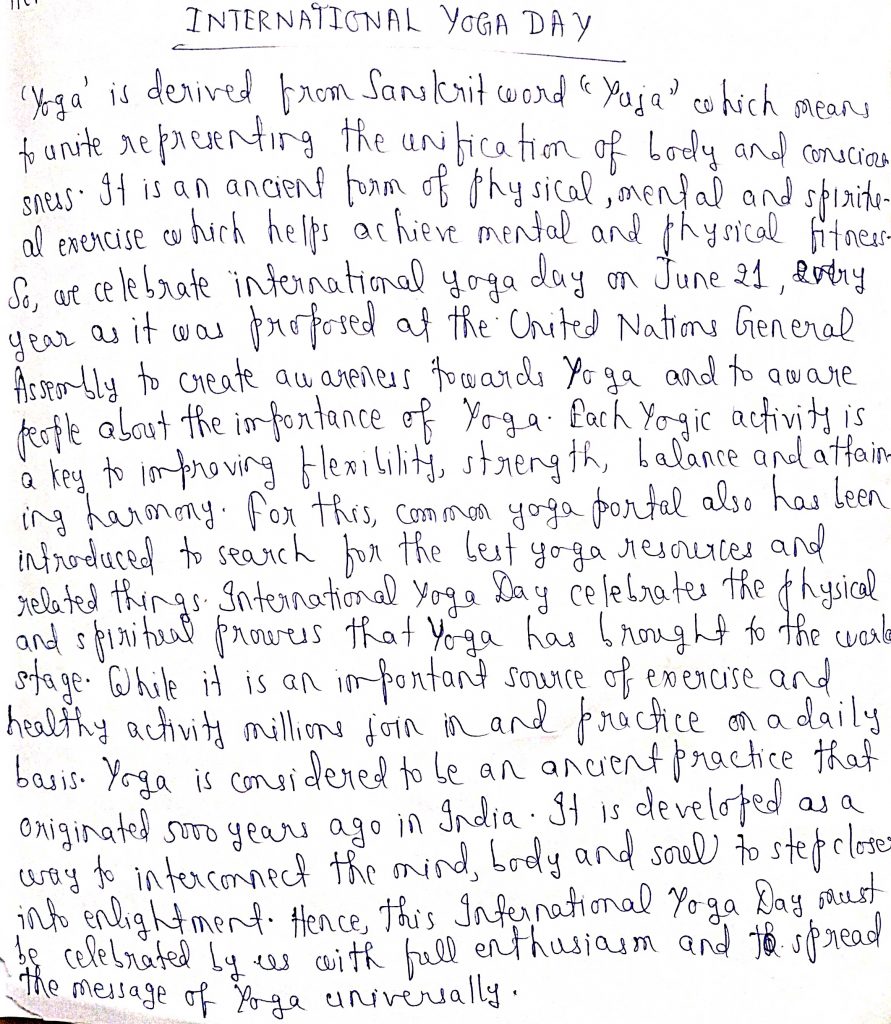 INTERNATIONAL YOGA DAY
'Yoga' is derived from Sanskrit word "Yuja" which means
to unite representing the unification of body and conscious
sness. It is an ancient form of physical, mental and spiritu-
al exercise which helps achieve mental and physical fitness.
So, we celebrate international yoga day on June 21, every
year as it was proposed at the United Nations General
Assembly to create awareness towards Yoga and to aware
people about the importance of Yoga. Each Yogic activity is
a key to improving flexibility, strength, balance and attain-
ing harmony. For this, common yoga portal also has been
introduced to search for the best yoga resources and
related things. International Yoga Day celebrates the physical
and spiritual prowess that Yoga has brought to the world
stage. While it is an important source of exercise and
healthy activity millions join in and practice on a daily
basis. Yoga is considered to be an ancient practice that
originated 5000 years ago in India. It is developed as a
way to interconnect the mind, body and soul to step closer
into enlightment. Hence, this International Yoga Day must
be celebrated by us with full enthusiasm and to spread
the message of Yoga universally.